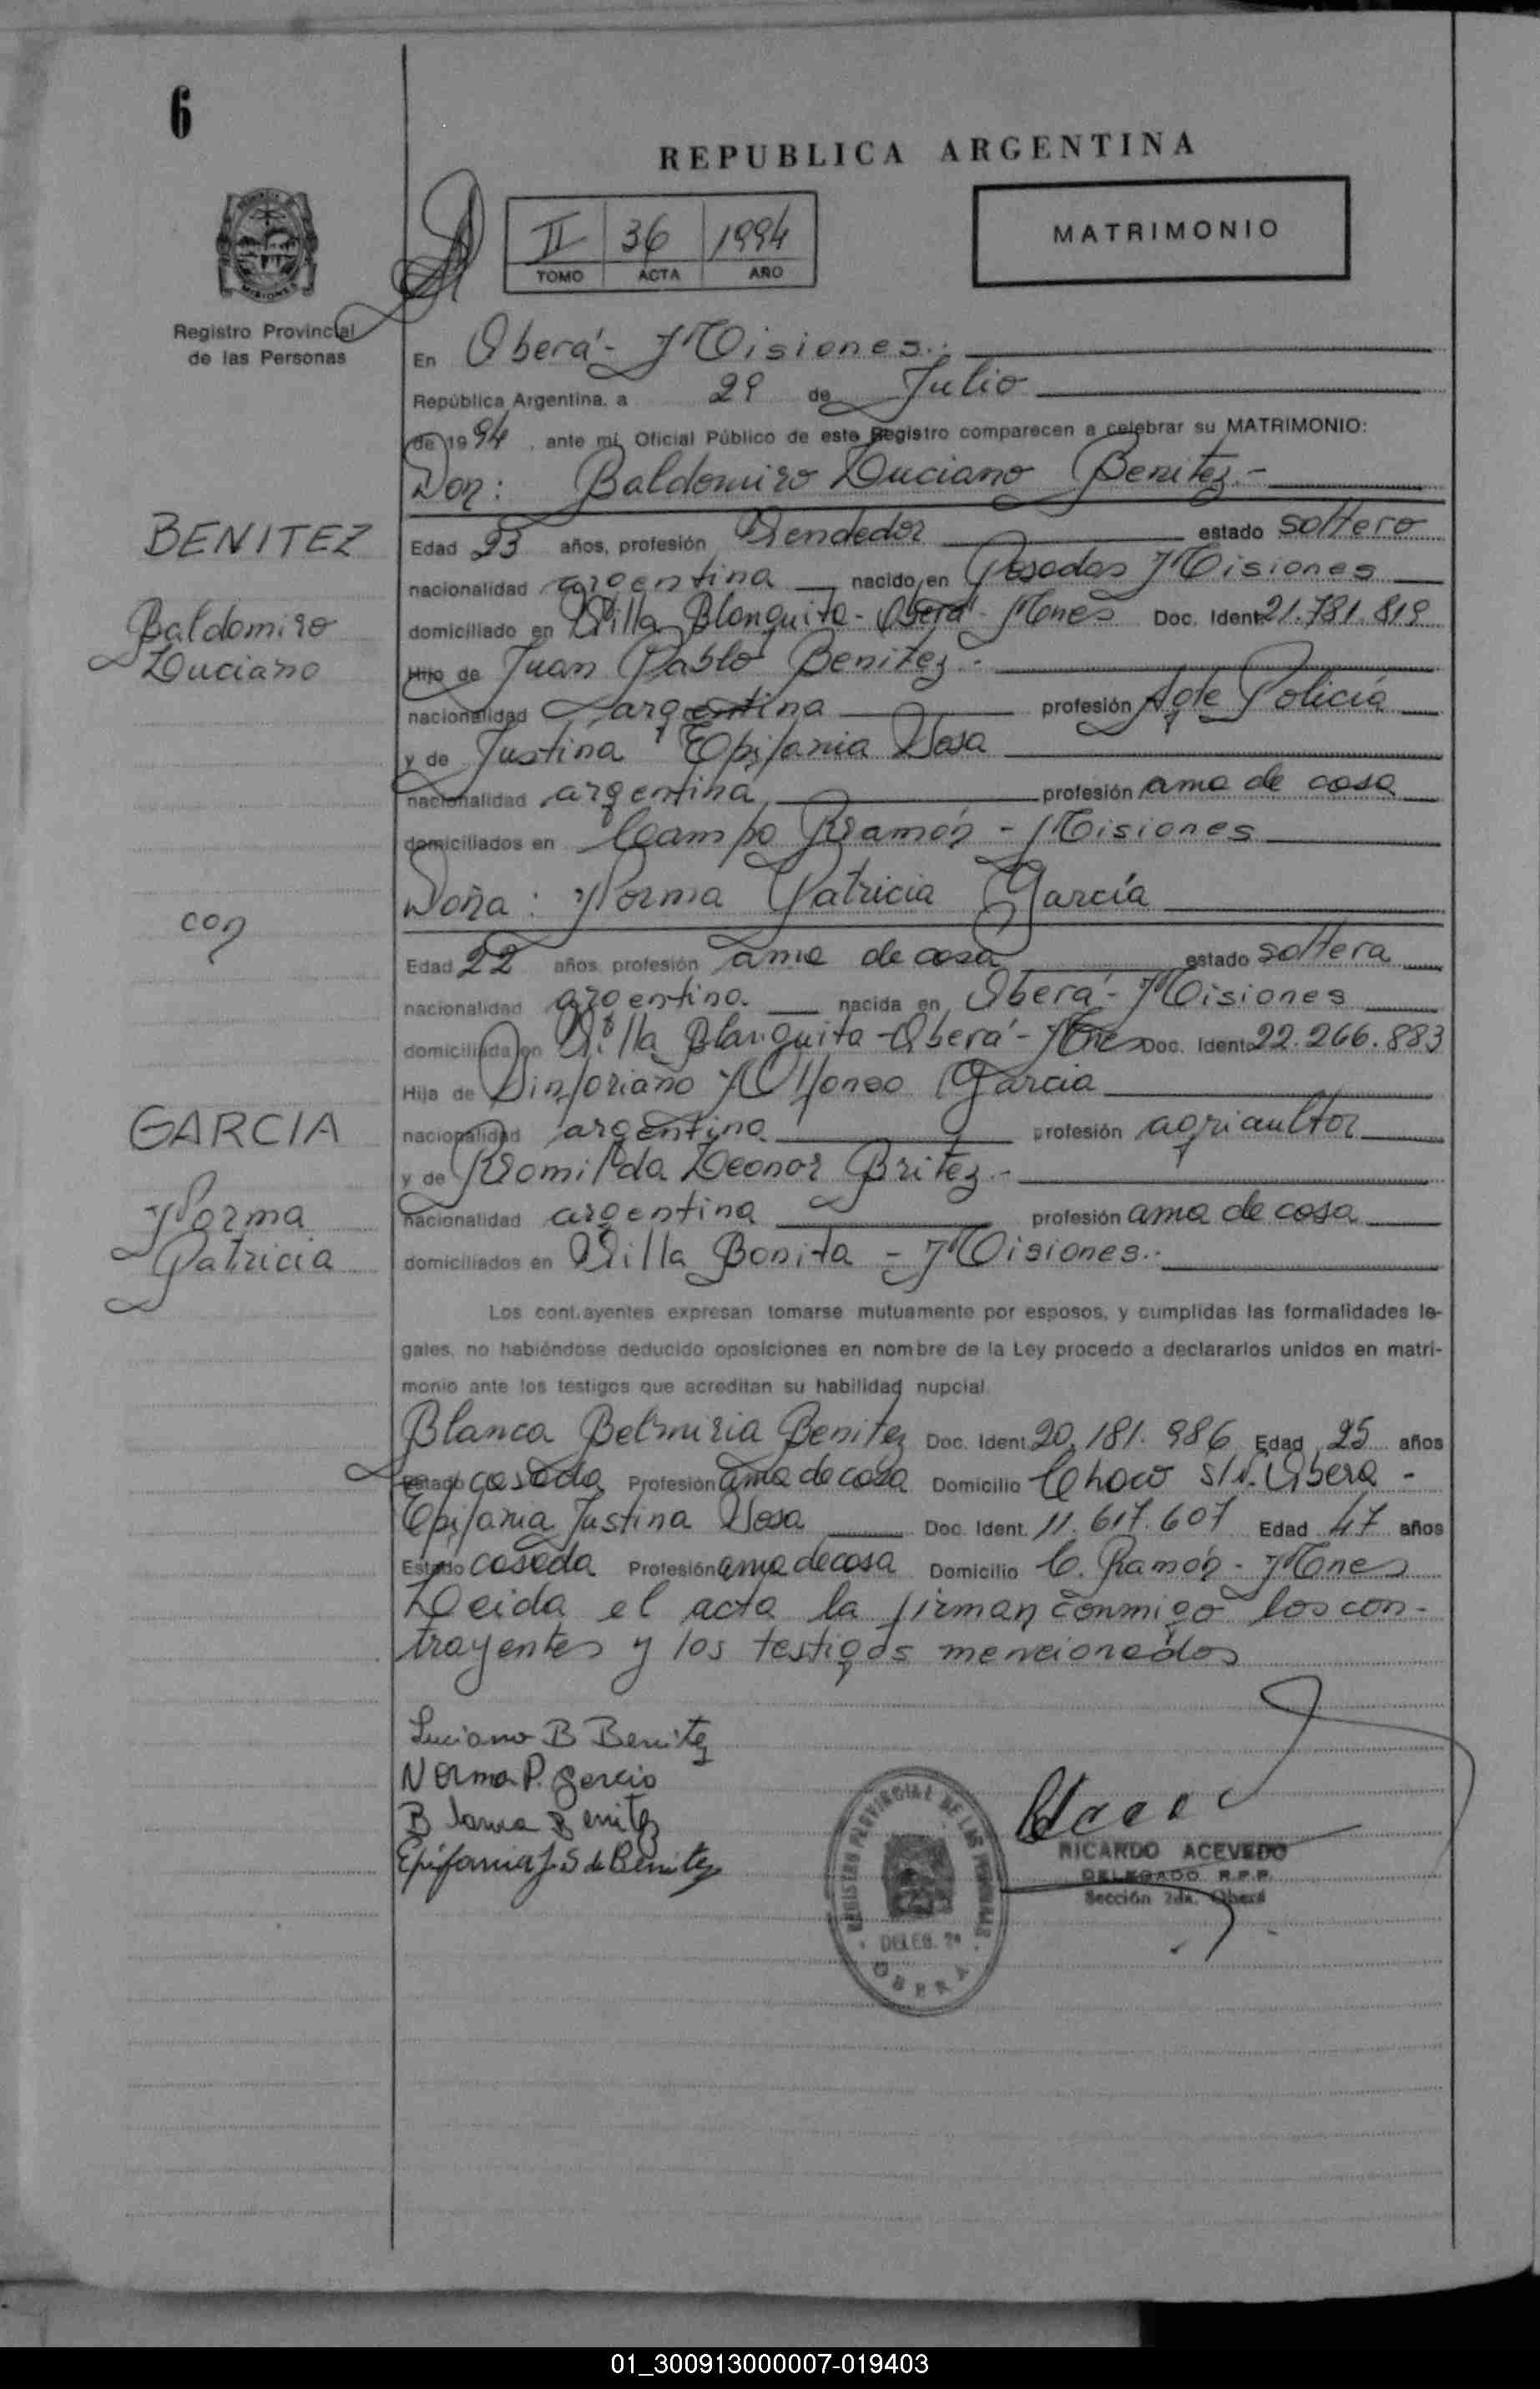 6
REPUBLICA ARGENTINA
II 36 1994
TOMO ACTA AÑO
MATRIMONIO
Registro Provincial
de las Personas
En Oberá - Misiones.-
República Argentina, a 29 de Julio
de 1994, ante mí, Oficial Público de este Registro comparecen a celebrar su MATRIMONIO:
Don: Baldomiro Luciano Benitez.-
BENITEZ
Baldomiro
Luciano
Edad 23 años, profesión Vendedor estado soltero
nacionalidad argentina nacido en Posadas Misiones
domiciliado en Villa Blanquita - Oberá - Mnes Doc. Ident. 21.781.819
Hijo de Juan Pablo Benitez.-
nacionalidad argentina profesión Agte Policía
y de Justina Epifania Sosa
nacionalidad argentina profesión ama de casa
domiciliados en Campo Ramón - Misiones
con
Doña: Norma Patricia García
Edad 22 años, profesión ama de casa estado soltera
nacionalidad argentina. nacida en Oberá - Misiones
domiciliada en Villa Blanquita - Oberá - Mnes Doc. Ident. 22.266.883
Hija de Sinforiano Alfonso Garcia
GARCIA
Norma
Patricia
nacionalidad argentina profesión agricultor
y de Romilda Leonor Britez.-
nacionalidad argentina profesión ama de casa
domiciliados en Villa Bonita - Misiones.-
Los contrayentes expresan tomarse mutuamente por esposos, y cumplidas las formalidades le-
gales, no habiéndose deducido oposiciones en nombre de la Ley procedo a declararlos unidos en matri-
monio ante los testigos que acreditan su habilidad nupcial.
Blanca Belmiria Benitez Doc. Ident. 20.181.986 Edad 25 años
Estado casada Profesión ama de casa Domicilio Chaco s/n. Oberá -
Epifania Justina Sosa Doc. Ident. 11.617.607 Edad 47 años
Estado casada Profesión ama de casa Domicilio C. Ramón - Mnes
Leida el acta la firman conmigo los con-
trayentes y los testigos mencionados
Luciano B Benitez
Norma P. Garcia
Blanca Benitez
Epifania J. S de Benitez
REGISTRO PROVINCIAL DE LAS PERSONAS
DELEG. 2ª
OBERA
RICARDO ACEVEDO
DELEGADO R.P.P.
Sección 2da. Oberá
01_300913000007-019403